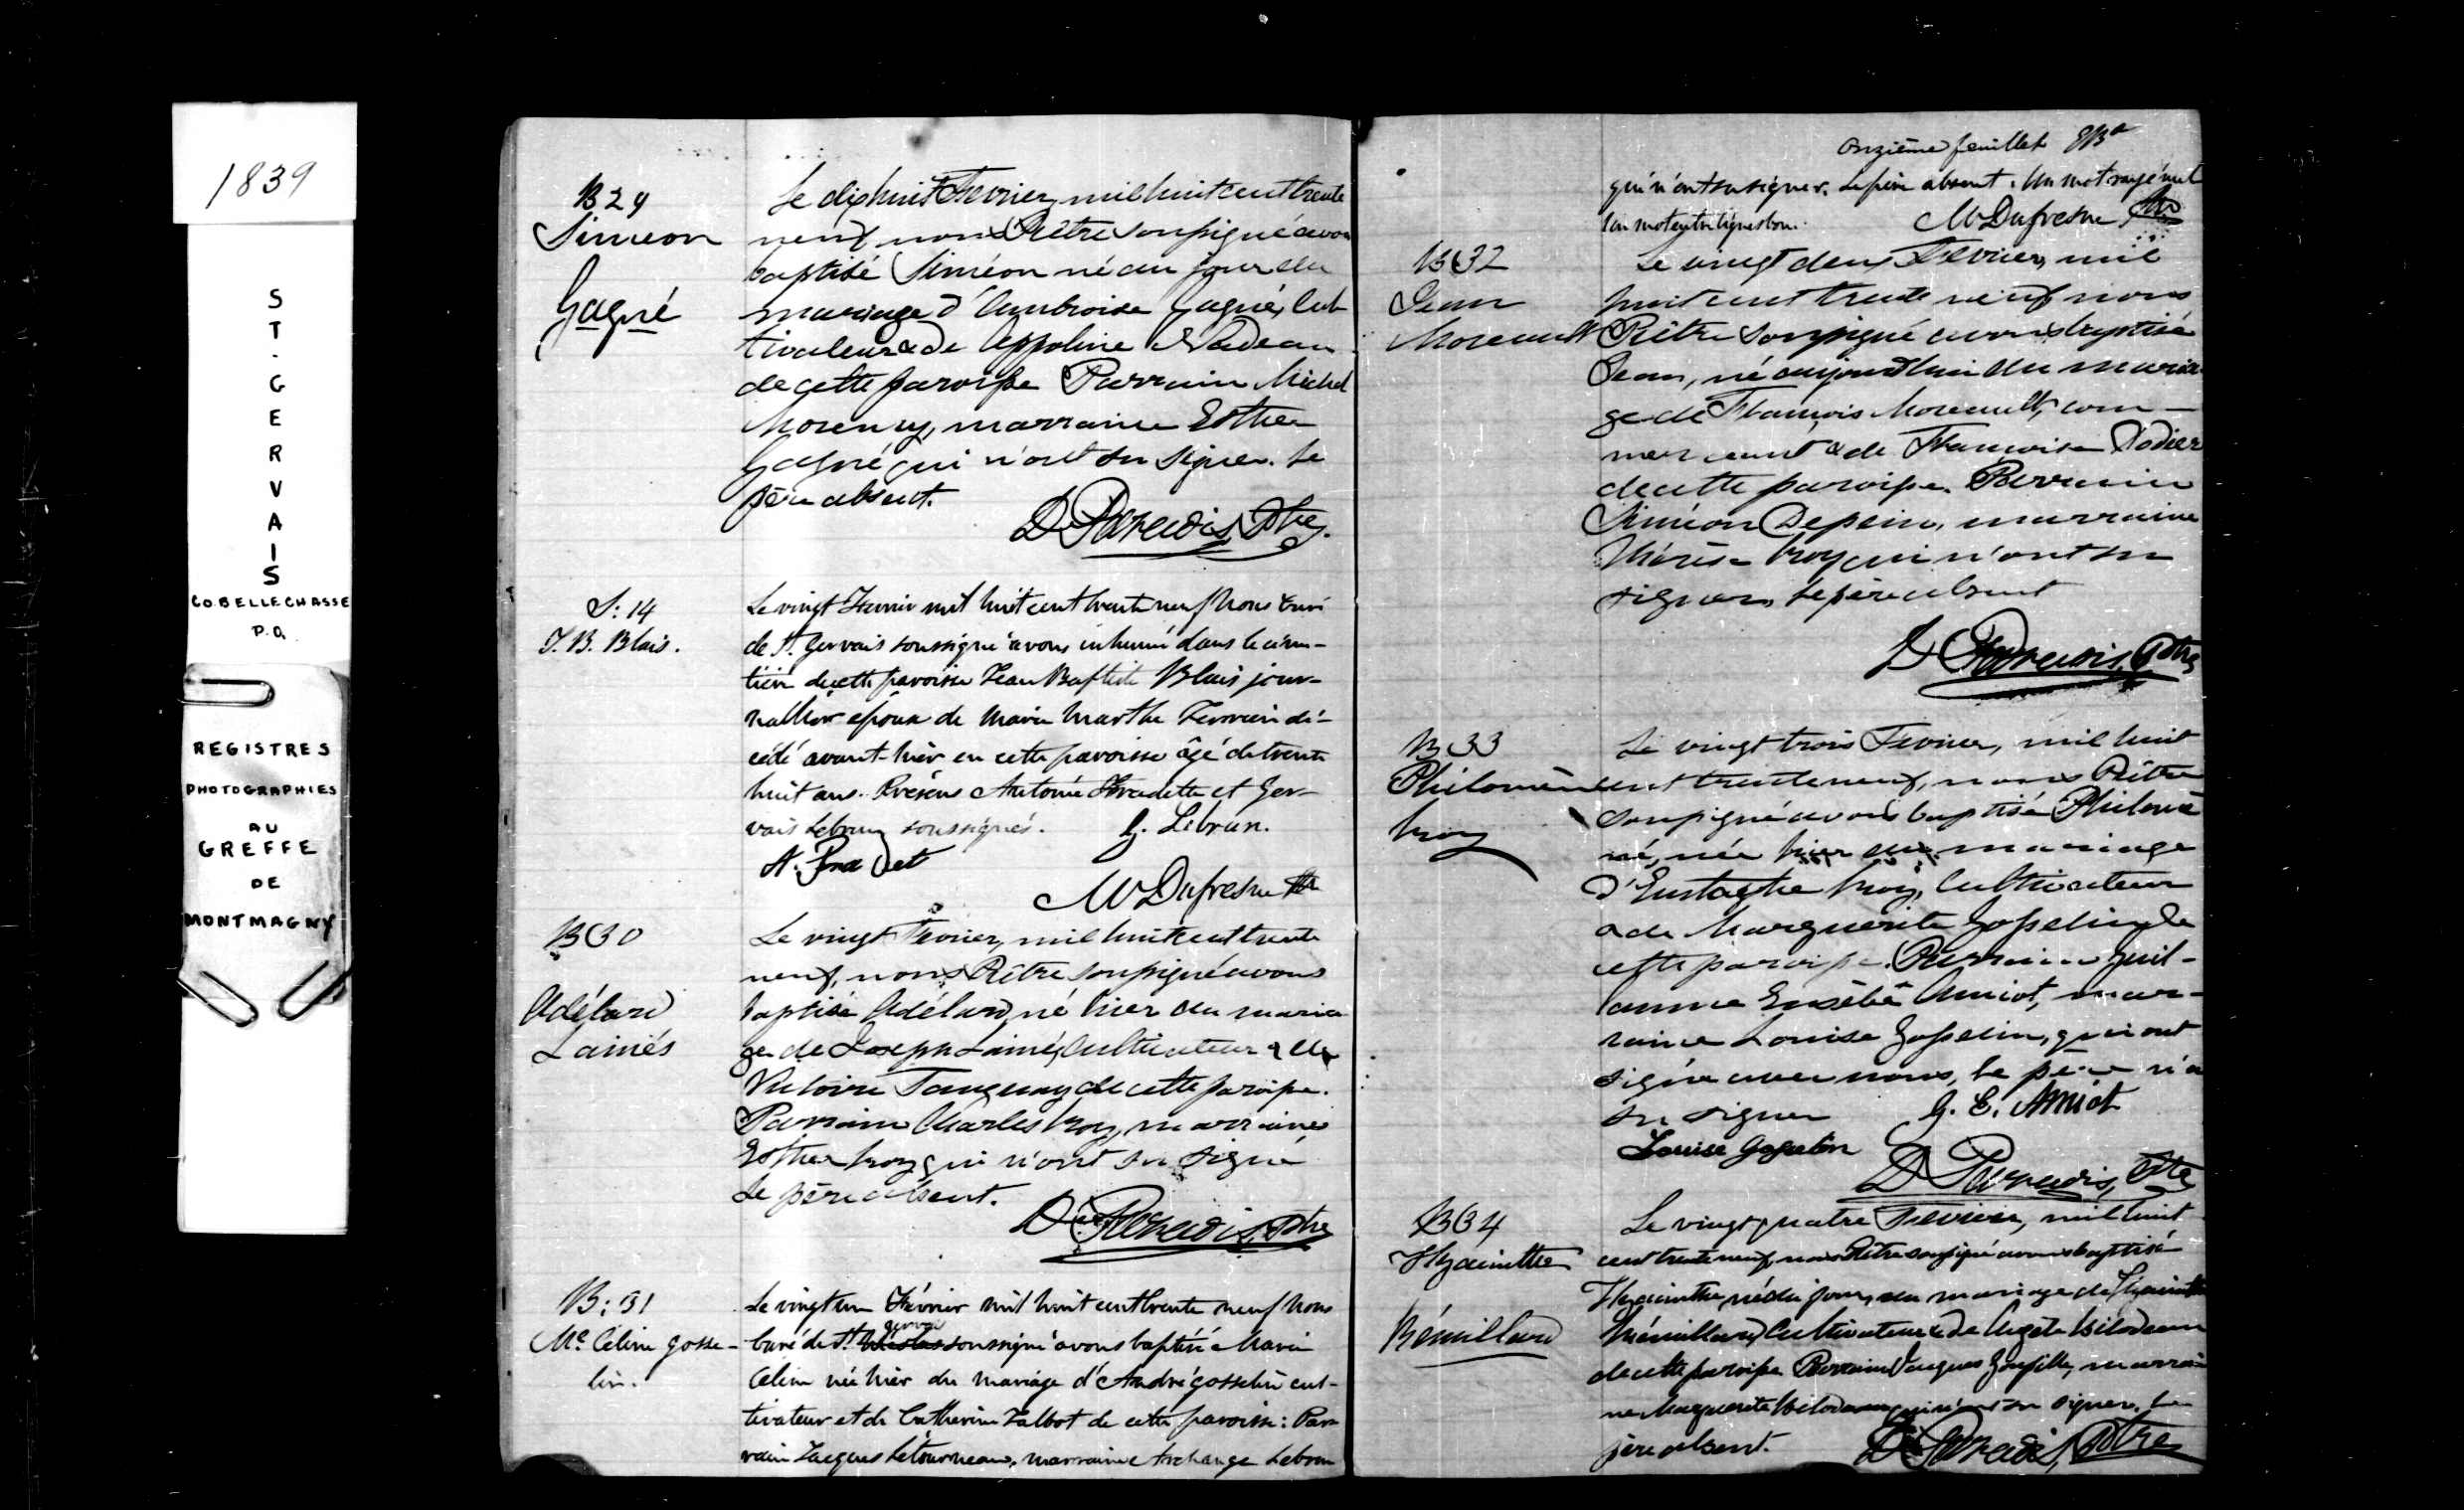 1839
ST. GERVAIS
CO. BELLECHASSE
P.Q.
REGISTRES
PHOTOGRAPHIES
AU
GREFFE
DE
MONTMAGNY
B 29
Siméon
Gagné
Le dix huit Fevrier, mil huit cent trente
neuf nous Prêtre soussigné avons
baptisé Siméon né au jour du
mariage d'Ambroise Gagné, cul
tivateur & de Appoline Nadeau
de cette paroisse Parrain Michel
Morency, marraine Esther
Gagné qui n'ont su signer. Le
père absent.
D Paradis, Ptre.
S: 14
J. B. Blais.
Le vingt Fevrier mil huit cent trente neuf Nous Curé
de St. Gervais soussigné avons inhumé dans le cime-
tière de cette paroisse Jean Baptiste Blais jour-
nallier époux de Marie Marthe Terrien dé-
cédé avant-hier en cette paroisse âgé de trente
huit ans. Présens Antoine Fradette et Ger-
vais Lebrun soussignés. G. Lebrun.
A. Fradet
M Dufresne Ptre
B 30
Adélard
Lainés
Le vingt Fevrier, mil huit cent trente
neuf, nous Prêtre soussigné avons
baptisé Adélard, né hier du maria
ge de Joseph Lainé, Cultivateur & de
Victoire Tanguay de cette paroisse.
Parrain Charles Roy, marraine
Esther Roy qui n'ont su signé
Le père absent.
D Paradis, Ptre
B: 31
Me. Céline Gosse-
lin.
Le vingt un Février mil huit cent trente neuf Nous
Curé de St. Gervais soussigné avons baptisé Marie
Céline née hier du mariage d'André Gosselin cul-
tivateur et de Catherine Talbot de cette paroisse: Par
rain Jacques Letourneau, marraine Archange Lebrun
Onzième feuillet
qui n'ont su signer. Le père absent. Un mot rayé nul
Un mot entre lignes bon. M Dufresne Ptre
B 32
Jean
Moreault
Le vingt deux Fevrier, mil
huit cent trente neuf nous
Prêtre soussigné avons baptisé
Jean, né aujourd'hui du maria
ge de François Moreault, com-
mercant & de Francoise Nodier
de cette paroisse. Parrain
Siméon Pepin, marraine
Thérèse Roy qui n'ont su
signer, le père absent
D Paradis, Ptre
B 33
Philomène
Roy
Le vingt trois Fevrier, mil huit
cent trente neuf, nous Prêtre
soussigné avons baptisé Philomè
né, née hier du mariage
d'Eustache Roy, Cultivateur
& de Marguerite Gosselin, de
cette paroisse. Parrain Guil-
laume Eusèbe Amiot, mar-
raine Louise Gosselin, qui ont
signé avec nous, le père n'a
su signer G. E. Amiot
Louise Gosselin
D Paradis, Ptre
B 34
Hyacinthe
Rémillard
Le vingt quatre Fevrier, mil huit
cent trente neuf, nous Prêtre soussigné avons baptisé
Hyacinthe, né du jour, du mariage de Hyacinthe
Rémillard, Cultivateur & de Angèle Bilodeau
de cette paroisse Parrain Jacques marrai
ne Marguerite Bilodeau qui n'ont su signer. Le
père absent. D Paradis, Ptre